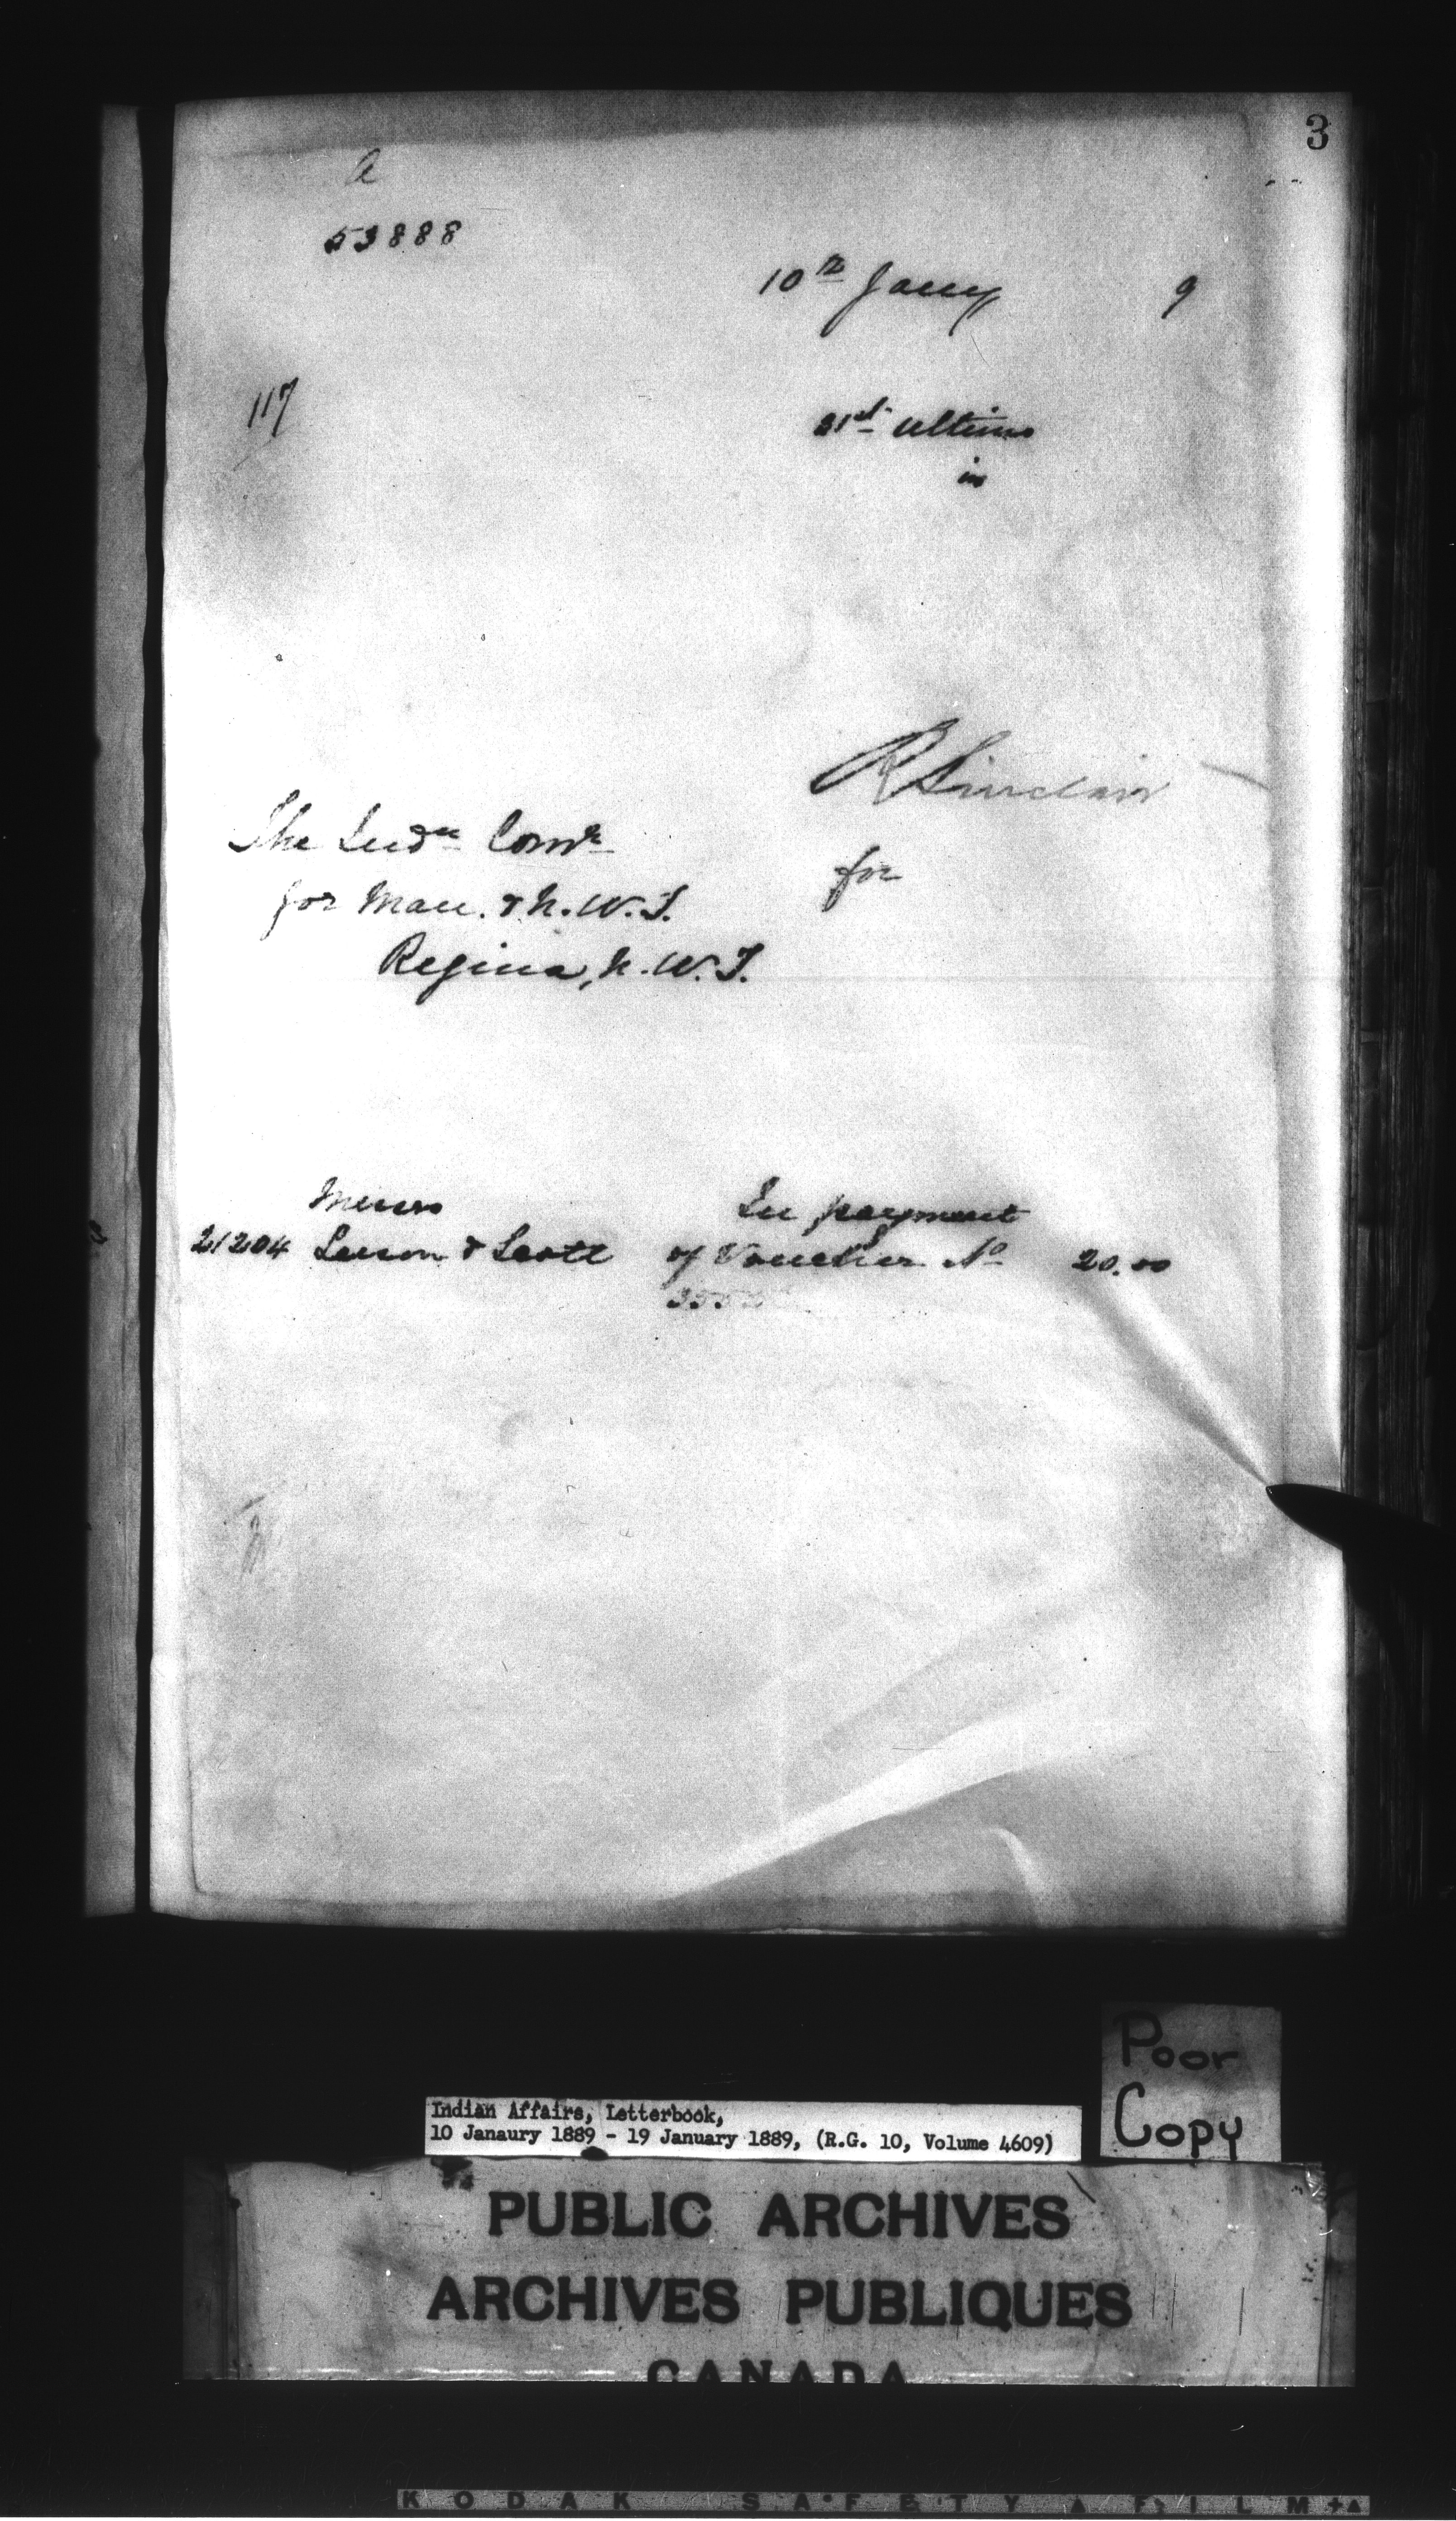 3
a
53888
10th Jany 9
117
31st ultimo
in
R Sinclair
The Indn Comr
for
for Man. & N.W.T.
Regina, N.W.T.
Messrs In payment
21204 Leeson & Scott of Voucher No 20.00
Poor
Copy
Indian Affairs, Letterbook,
10 Janaury 1889 - 19 January 1889, (R.G. 10, Volume 4609)
PUBLIC ARCHIVES
ARCHIVES PUBLIQUES
CANADA
KODAK SAFETY FILM